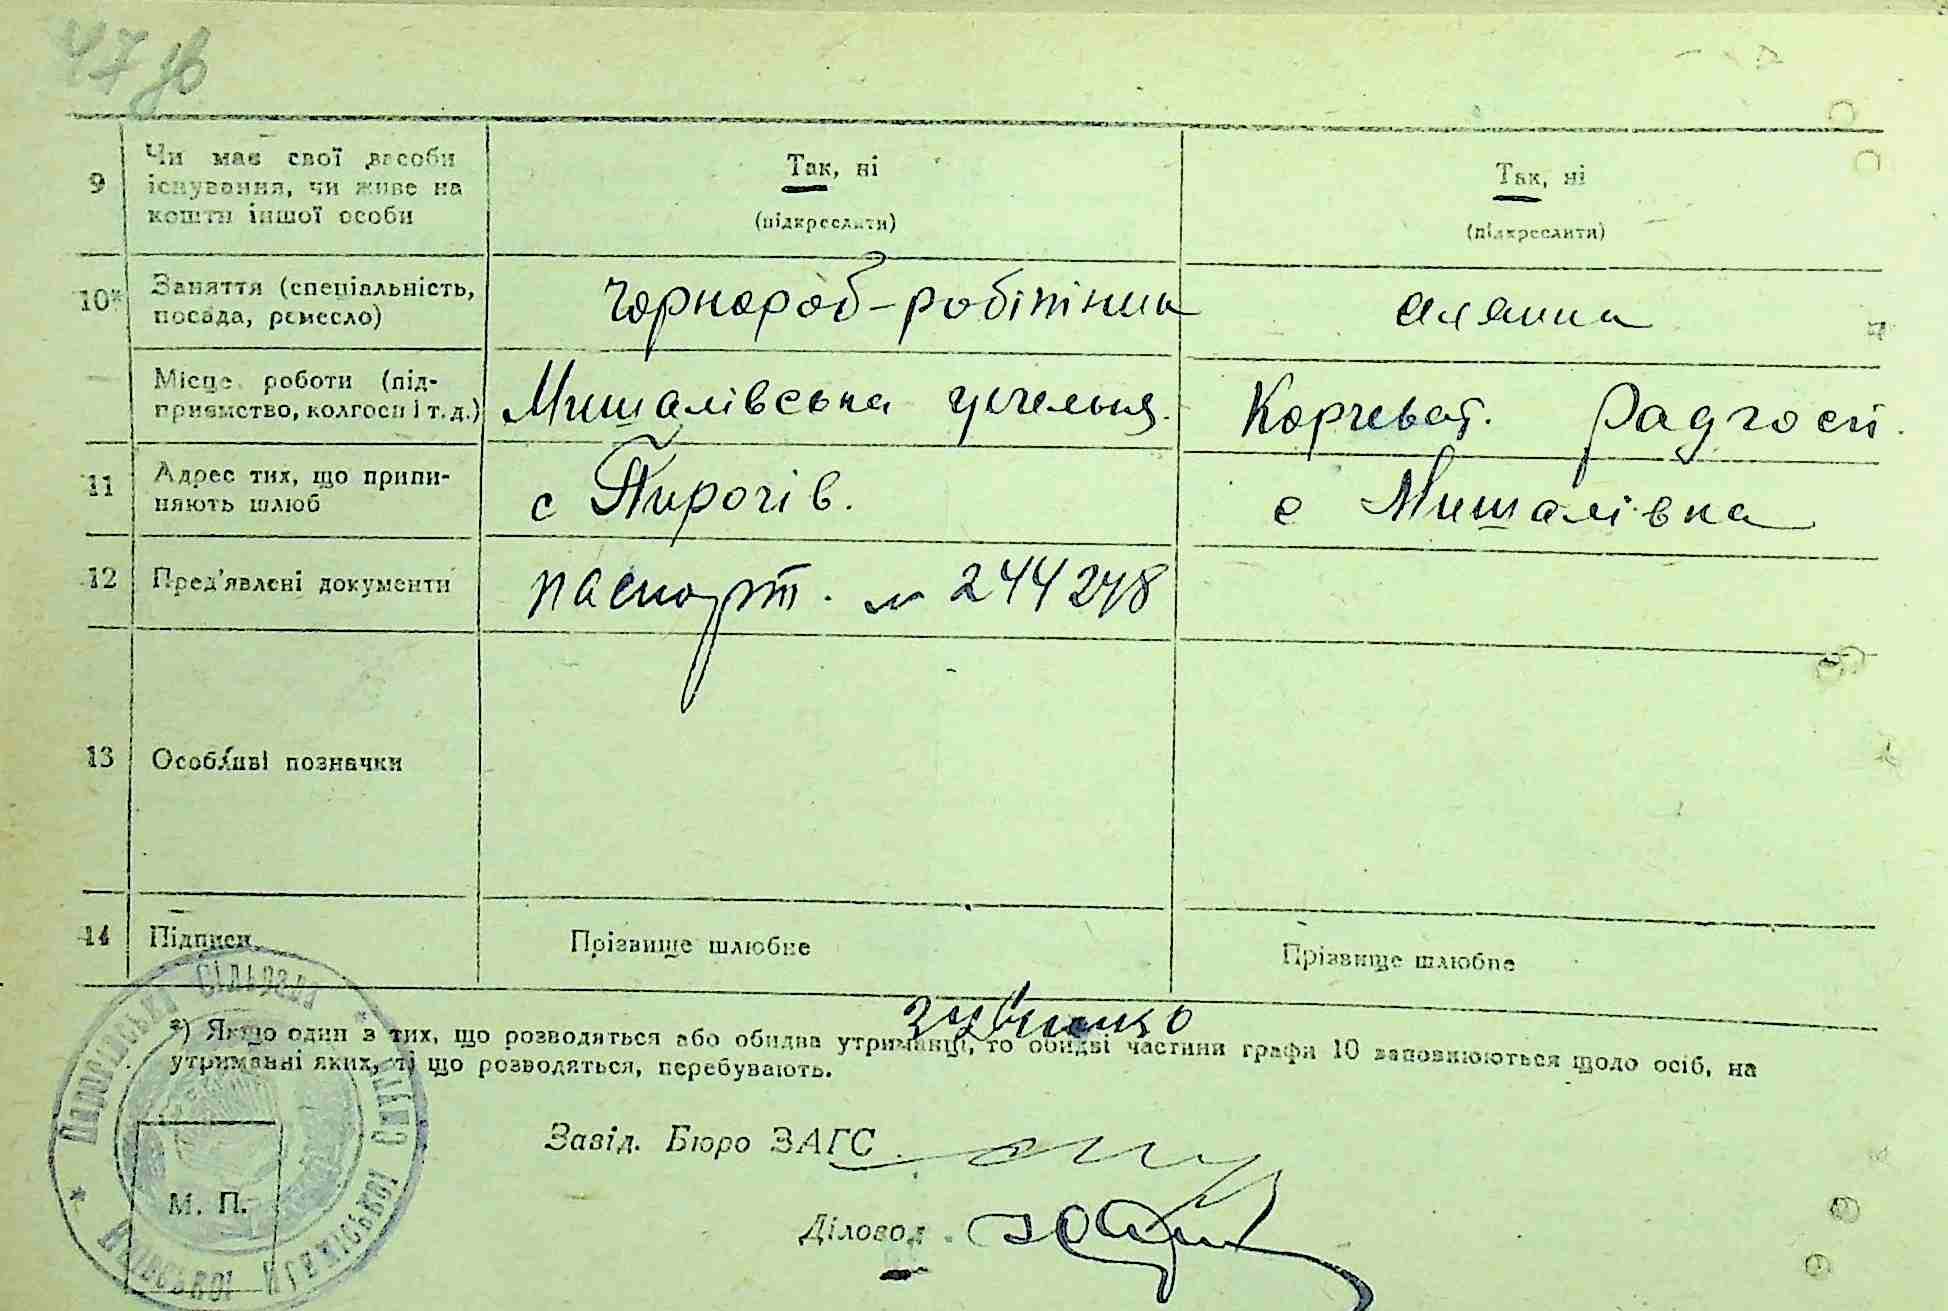 47 зв
9 Чи має свої засоби існування, чи живе на кошти іншої особи
Так, ні
(підкреслити)
Так, ні
(підкреслити)
10* Заняття (спеціальність, посада, ремесло)
Чорнороб-робітник
Місце роботи (підприємство, колгосп і т. д.)
Мишалівська цегельня.
Корчеват. Радгосп.
11 Адрес тих, що припиняють шлюб
с Пирогів.
с Мишалівка
12 Пред'явлені документи
паспорт. № 244248
13 Особливі позначки
14 Підписи
Прізвище шлюбне
Прізвище шлюбне
*) Якщо один з тих, що розводяться або обидва утриманці, то обидві частини графи 10 заповнюються щодо осіб, на
утриманні яких, ті що розводяться, перебувають.
Завід. Бюро ЗАГС
Діловод
М. П.
Пирогівська Сільрада
Київської міської